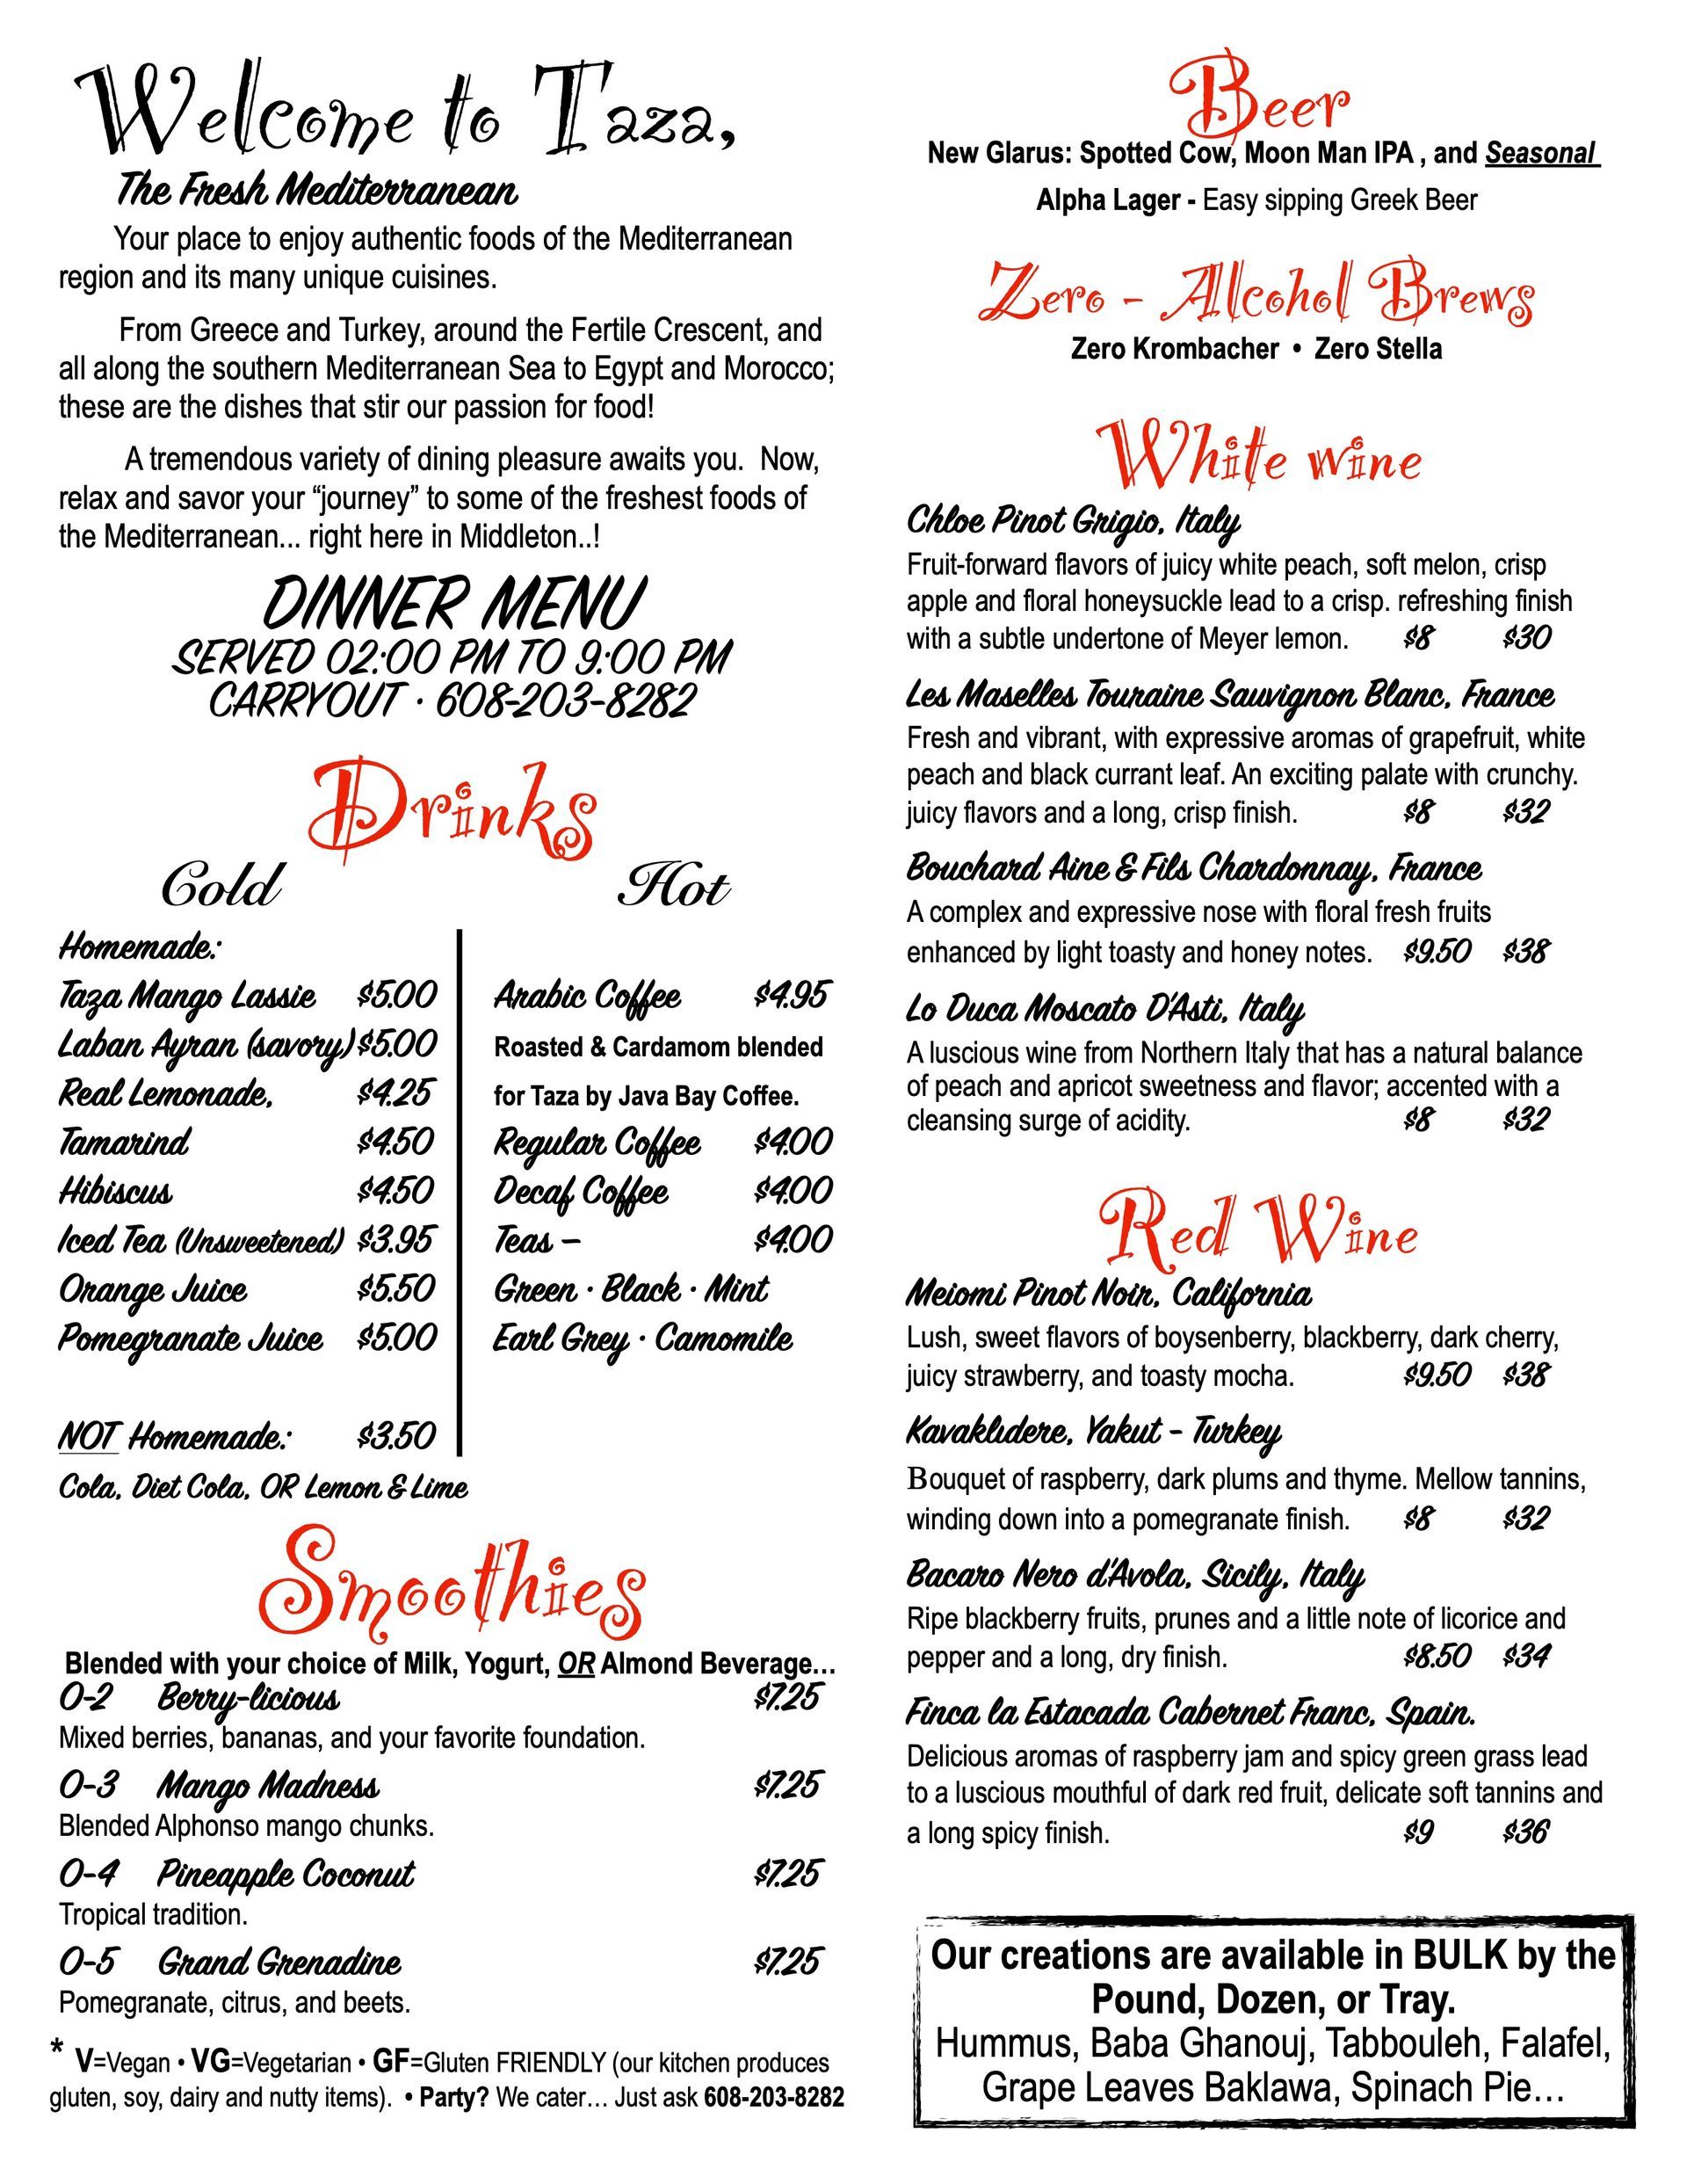 Welcome to Taza,
The Fresh Mediterranean
Your place to enjoy authentic foods of the Mediterranean
region and its many unique cuisines.
From Greece and Turkey, around the Fertile Crescent, and
all along the southern Mediterranean Sea to Egypt and Morocco;
these are the dishes that stir our passion for food!
A tremendous variety of dining pleasure awaits you. Now,
relax and savor your “journey” to some of the freshest foods of
the Mediterranean... right here in Middleton..!
DINNER MENU
SERVED 02:00 PM TO 9:00 PM
CARRYOUT · 608-203-8282
Drinks
Cold
Homemade:
Taza Mango Lassie $5.00
Laban Ayran (savory) $5.00
Real Lemonade, $4.25
Tamarind $4.50
Hibiscus $4.50
Iced Tea (Unsweetened) $3.95
Orange Juice $5.50
Pomegranate Juice $5.00
NOT Homemade: $3.50
Cola, Diet Cola, OR Lemon & Lime
Hot
Arabic Coffee $4.95
Roasted & Cardamom blended
for Taza by Java Bay Coffee.
Regular Coffee $4.00
Decaf Coffee $4.00
Teas – $4.00
Green · Black · Mint
Earl Grey · Camomile
Smoothies
Blended with your choice of Milk, Yogurt, OR Almond Beverage…
O-2 Berry-licious $7.25
Mixed berries, bananas, and your favorite foundation.
O-3 Mango Madness $7.25
Blended Alphonso mango chunks.
O-4 Pineapple Coconut $7.25
Tropical tradition.
O-5 Grand Grenadine $7.25
Pomegranate, citrus, and beets.
* V=Vegan • VG=Vegetarian • GF=Gluten FRIENDLY (our kitchen produces
gluten, soy, dairy and nutty items). • Party? We cater… Just ask 608-203-8282
Beer
New Glarus: Spotted Cow, Moon Man IPA , and Seasonal
Alpha Lager - Easy sipping Greek Beer
Zero - Alcohol Brews
Zero Krombacher • Zero Stella
White wine
Chloe Pinot Grigio, Italy
Fruit-forward flavors of juicy white peach, soft melon, crisp
apple and floral honeysuckle lead to a crisp. refreshing finish
with a subtle undertone of Meyer lemon. $8 $30
Les Maselles Touraine Sauvignon Blanc, France
Fresh and vibrant, with expressive aromas of grapefruit, white
peach and black currant leaf. An exciting palate with crunchy.
juicy flavors and a long, crisp finish. $8 $32
Bouchard Aine & Fils Chardonnay, France
A complex and expressive nose with floral fresh fruits
enhanced by light toasty and honey notes. $9.50 $38
Lo Duca Moscato D'Asti, Italy
A luscious wine from Northern Italy that has a natural balance
of peach and apricot sweetness and flavor; accented with a
cleansing surge of acidity. $8 $32
Red Wine
Meiomi Pinot Noir, California
Lush, sweet flavors of boysenberry, blackberry, dark cherry,
juicy strawberry, and toasty mocha. $9.50 $38
Kavaklıdere, Yakut - Turkey
Bouquet of raspberry, dark plums and thyme. Mellow tannins,
winding down into a pomegranate finish. $8 $32
Bacaro Nero d'Avola, Sicily, Italy
Ripe blackberry fruits, prunes and a little note of licorice and
pepper and a long, dry finish. $8.50 $34
Finca la Estacada Cabernet Franc, Spain.
Delicious aromas of raspberry jam and spicy green grass lead
to a luscious mouthful of dark red fruit, delicate soft tannins and
a long spicy finish. $9 $36
Our creations are available in BULK by the
Pound, Dozen, or Tray.
Hummus, Baba Ghanouj, Tabbouleh, Falafel,
Grape Leaves Baklawa, Spinach Pie…